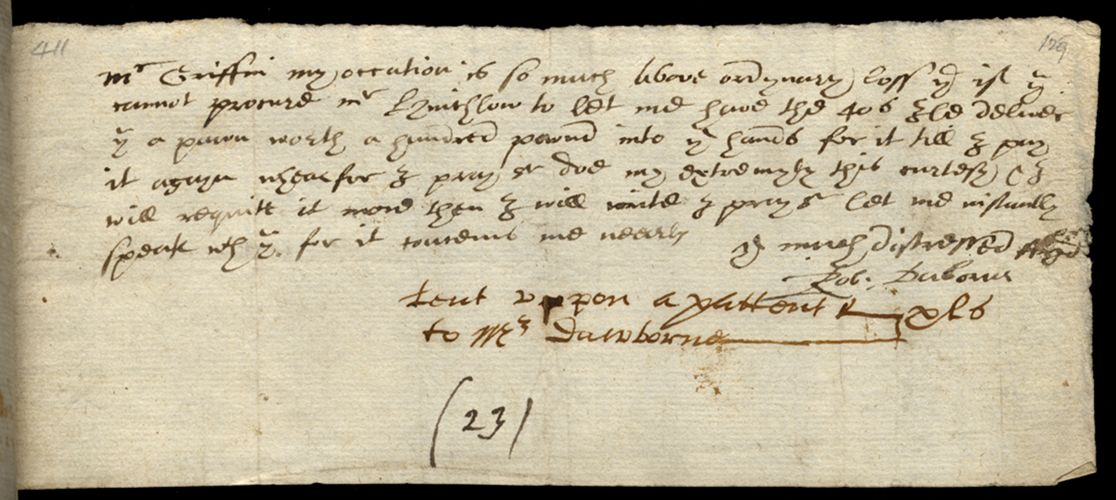 411
129
mr Griffin my occation is so much above ordynary loss yt if yu
cannot procure mr Hynchlow to let me have the 40s I'le deliver
yu a pawn worth a hundred pownd into yr hands for it till I pay
it again whearfor I pray sr doe my extremyty this curtesy &
will requitt it more then I will write I pray sr let me instantly
speak wth yu for it concerns me nearly
yr much distressed
Rob: Daborne
Lent vppon a pattent xls
to Mr Dawborne
(23)